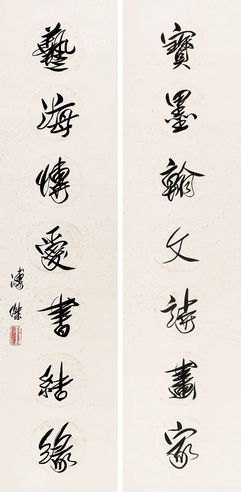 寶墨翰文詩畫家
藝海愽愛書結緣
溥傑